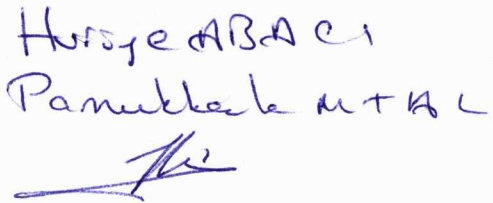 Huriye ABACI
Pamukkale MTAL